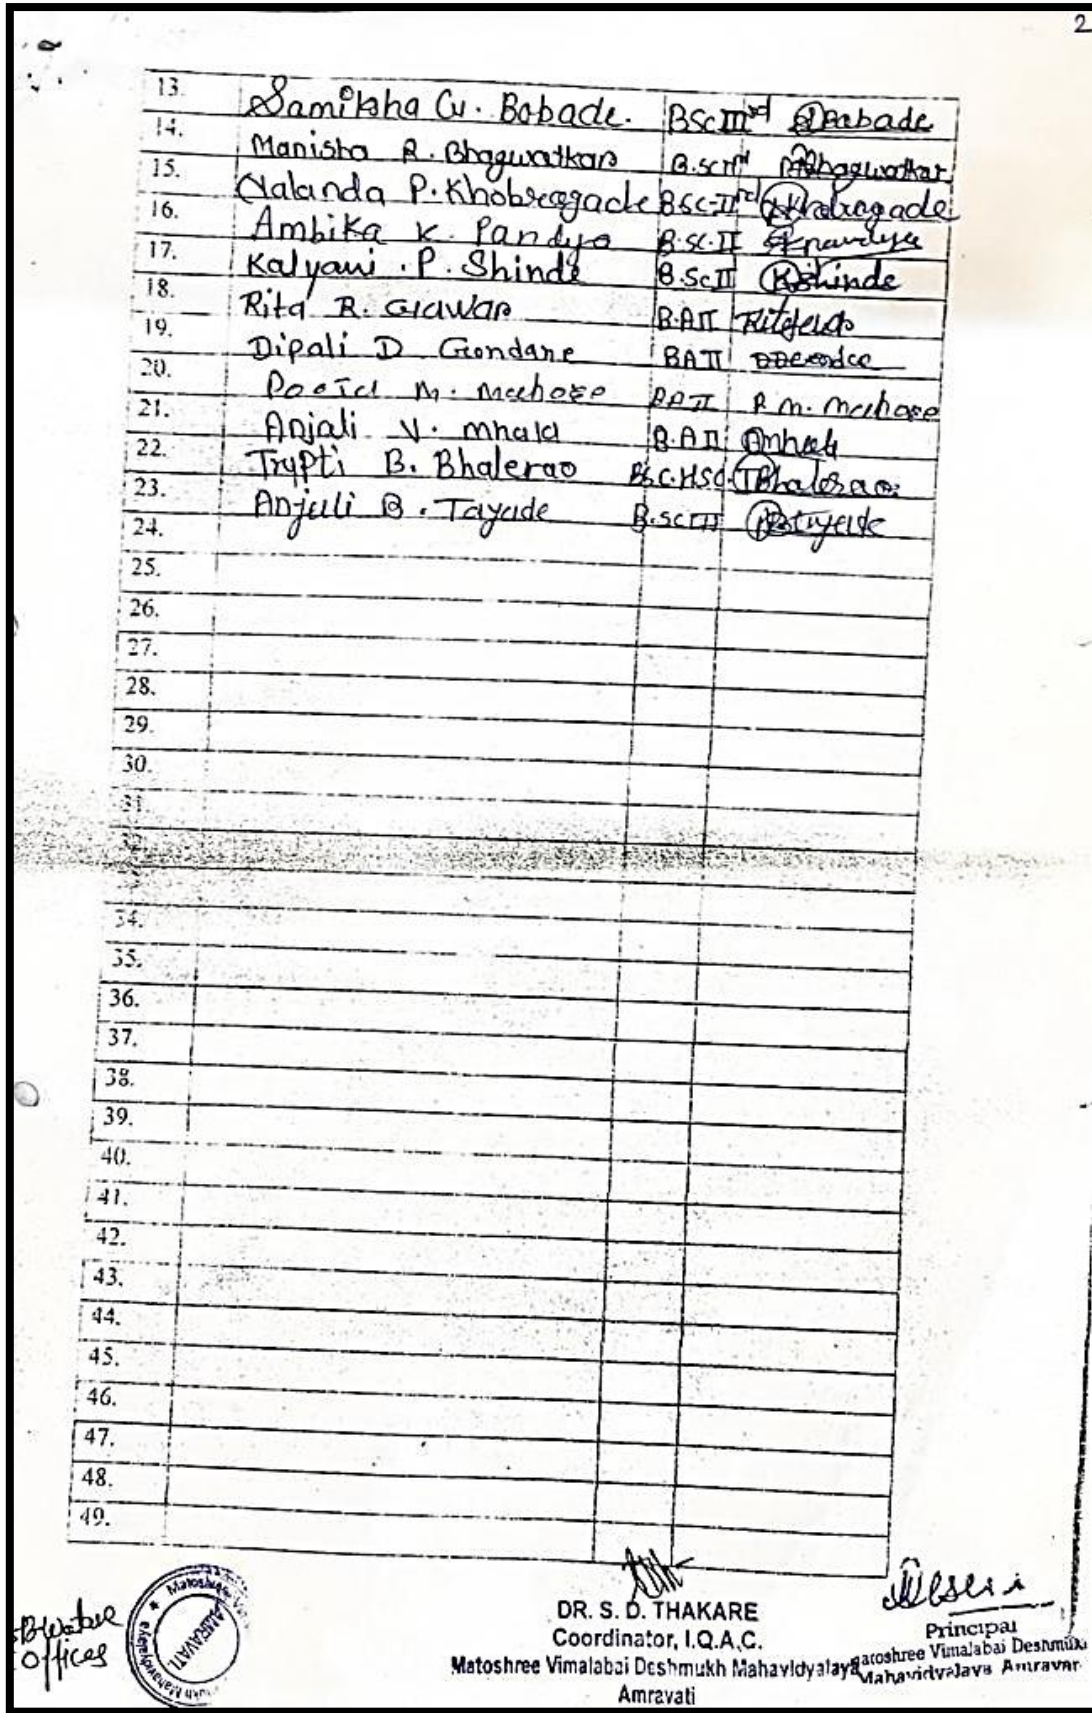 2
13. Samiksha G. Bobade. BSc III rd Bobade
14. Manisha R. Bhagwatkar B.sc Bhagwatkar
15. Nalanda P. Khobragade BSC-II Khobragade
16. Ambika K. Pandya B.SC.II
17. Kalyani .P. Shinde B.Sc II KShinde
18. Rita R. Gawar B.A II
19. Dipali D Gondane BA II
20. M. BA II R.M.
21. Anjali V. mhala B.A II
22. Trupti B. Bhalerao B.C.HSC. TBhalerao.
23. Anjuli B. Tayade B.SC III
24.
25.
26.
27.
28.
29.
30.
31.
34.
35.
36.
37.
38.
39.
40.
41.
42.
43.
44.
45.
46.
47.
48.
49.
Offices
AMRAVATI
DR. S. D. THAKARE
Coordinator, I.Q.A.C.
Matoshree Vimalabai Deshmukh Mahavidyalaya
Amravati
Principal
Matoshree Vimalabai Deshmukh
Mahavidyalaya Amravati